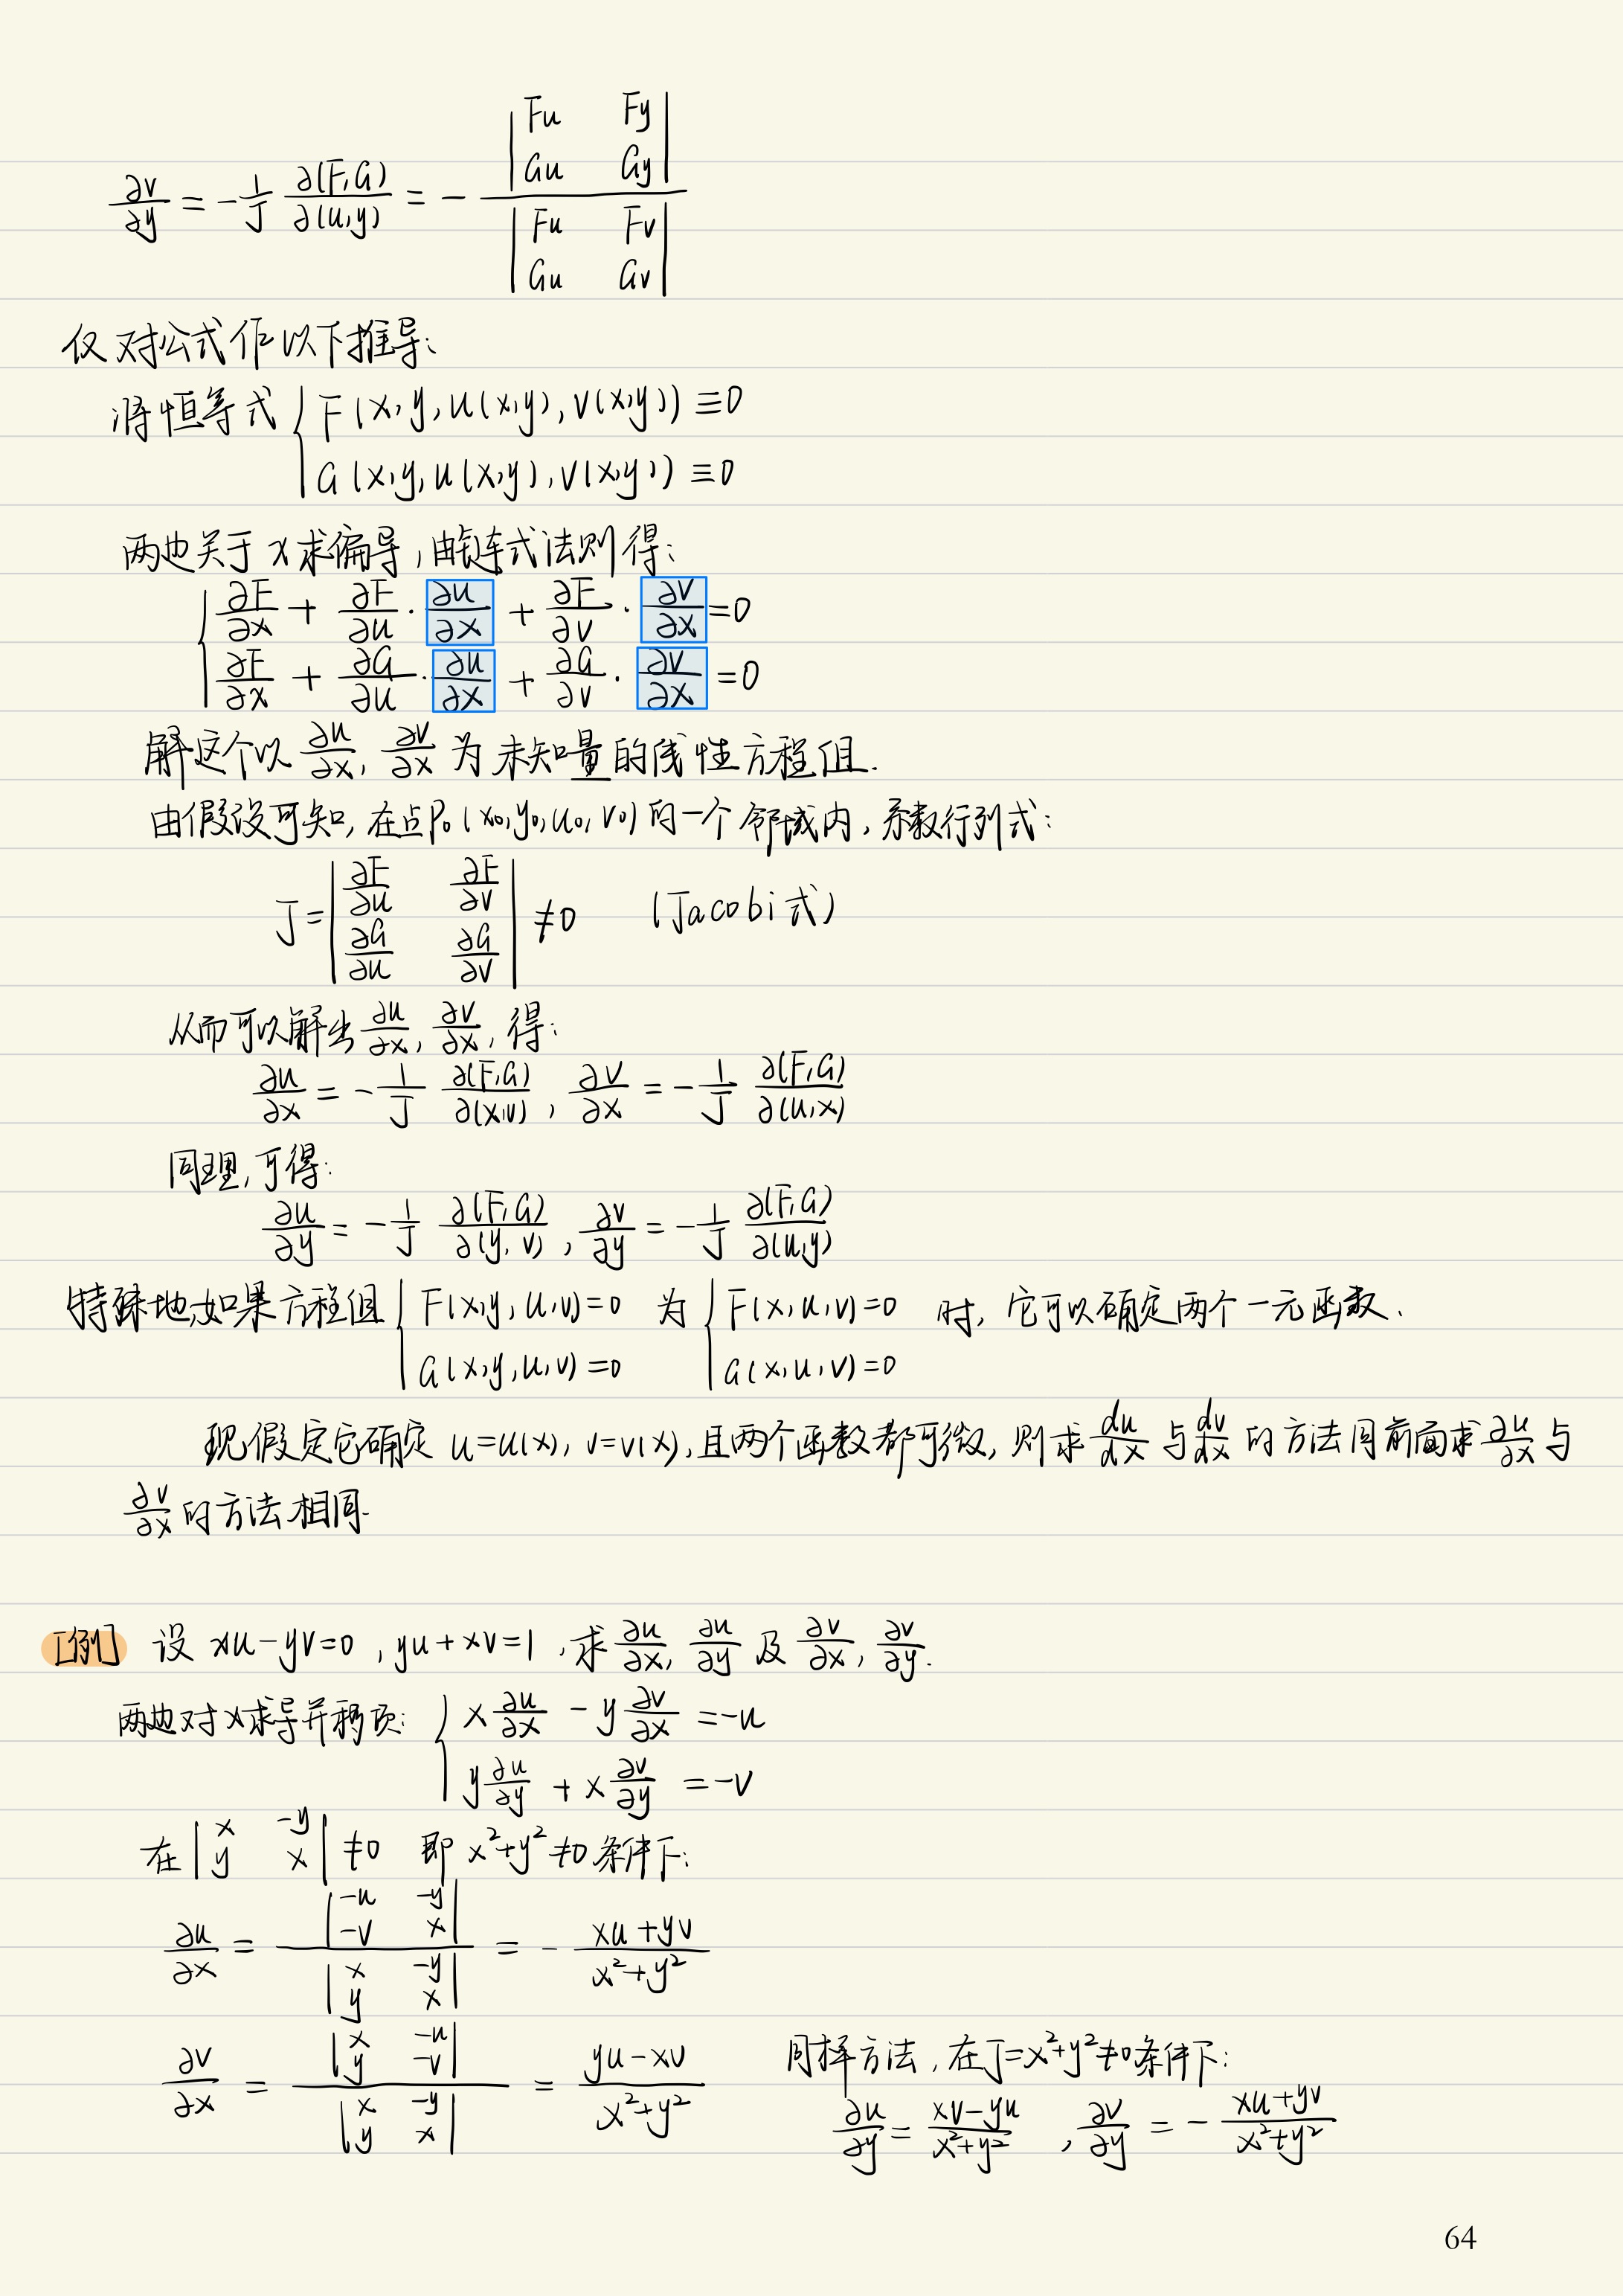 ∂v/∂y = -1/J ∂(F,G)/∂(u,y) = - |Fu Fy; Gu Gy| / |Fu Fv; Gu Gv|
仅对公式作以下推导:
将恒等式 { F(x,y,u(x,y),v(x,y)) ≡0
G(x,y,u(x,y),v(x,y)) ≡0
两边关于x求偏导,由链式法则得:
{ ∂F/∂x + ∂F/∂u · ∂u/∂x + ∂F/∂v · ∂v/∂x =0
∂F/∂x + ∂G/∂u · ∂u/∂x + ∂G/∂v · ∂v/∂x =0
解这个以 ∂u/∂x, ∂v/∂x 为未知量的线性方程组.
由假设可知,在点P₀(x₀,y₀,u₀,v₀)的一个邻域内,系数行列式:
J= |∂F/∂u ∂F/∂v; ∂G/∂u ∂G/∂v| ≠0 (Jacobi式)
从而可以解出 ∂u/∂x, ∂v/∂x, 得:
∂u/∂x = -1/J ∂(F,G)/∂(x,v), ∂v/∂x = -1/J ∂(F,G)/∂(u,x)
同理,可得:
∂u/∂y = -1/J ∂(F,G)/∂(y,v), ∂v/∂y = -1/J ∂(F,G)/∂(u,y)
特殊地,如果方程组 { F(x,y,u,v)=0 为 { F(x,u,v)=0 时,它可以确定两个一元函数、
G(x,y,u,v)=0 G(x,u,v)=0
现假定它确定 u=u(x), v=v(x),且两个函数都可微,则求 du/dx 与 dv/dx 的方法同前面求 ∂u/∂x 与
∂v/∂x 的方法相同.
[例] 设 xu-yv=0, yu+xv=1, 求 ∂u/∂x, ∂u/∂y 及 ∂v/∂x, ∂v/∂y.
两边对x求导并移项: { x ∂u/∂x - y ∂v/∂x =-u
y ∂u/∂y + x ∂v/∂y =-v
在 |x -y; y x| ≠0 即 x²+y²≠0 条件下:
∂u/∂x = |-u -y; -v x| / |x -y; y x| = - (xu+yv)/(x²+y²)
∂v/∂x = |x -u; y -v| / |x -y; y x| = (yu-xv)/(x²+y²)
同样方法,在J=x²+y²≠0条件下:
∂u/∂y = (xv-yu)/(x²+y²), ∂v/∂y = - (xu+yv)/(x²+y²)
64